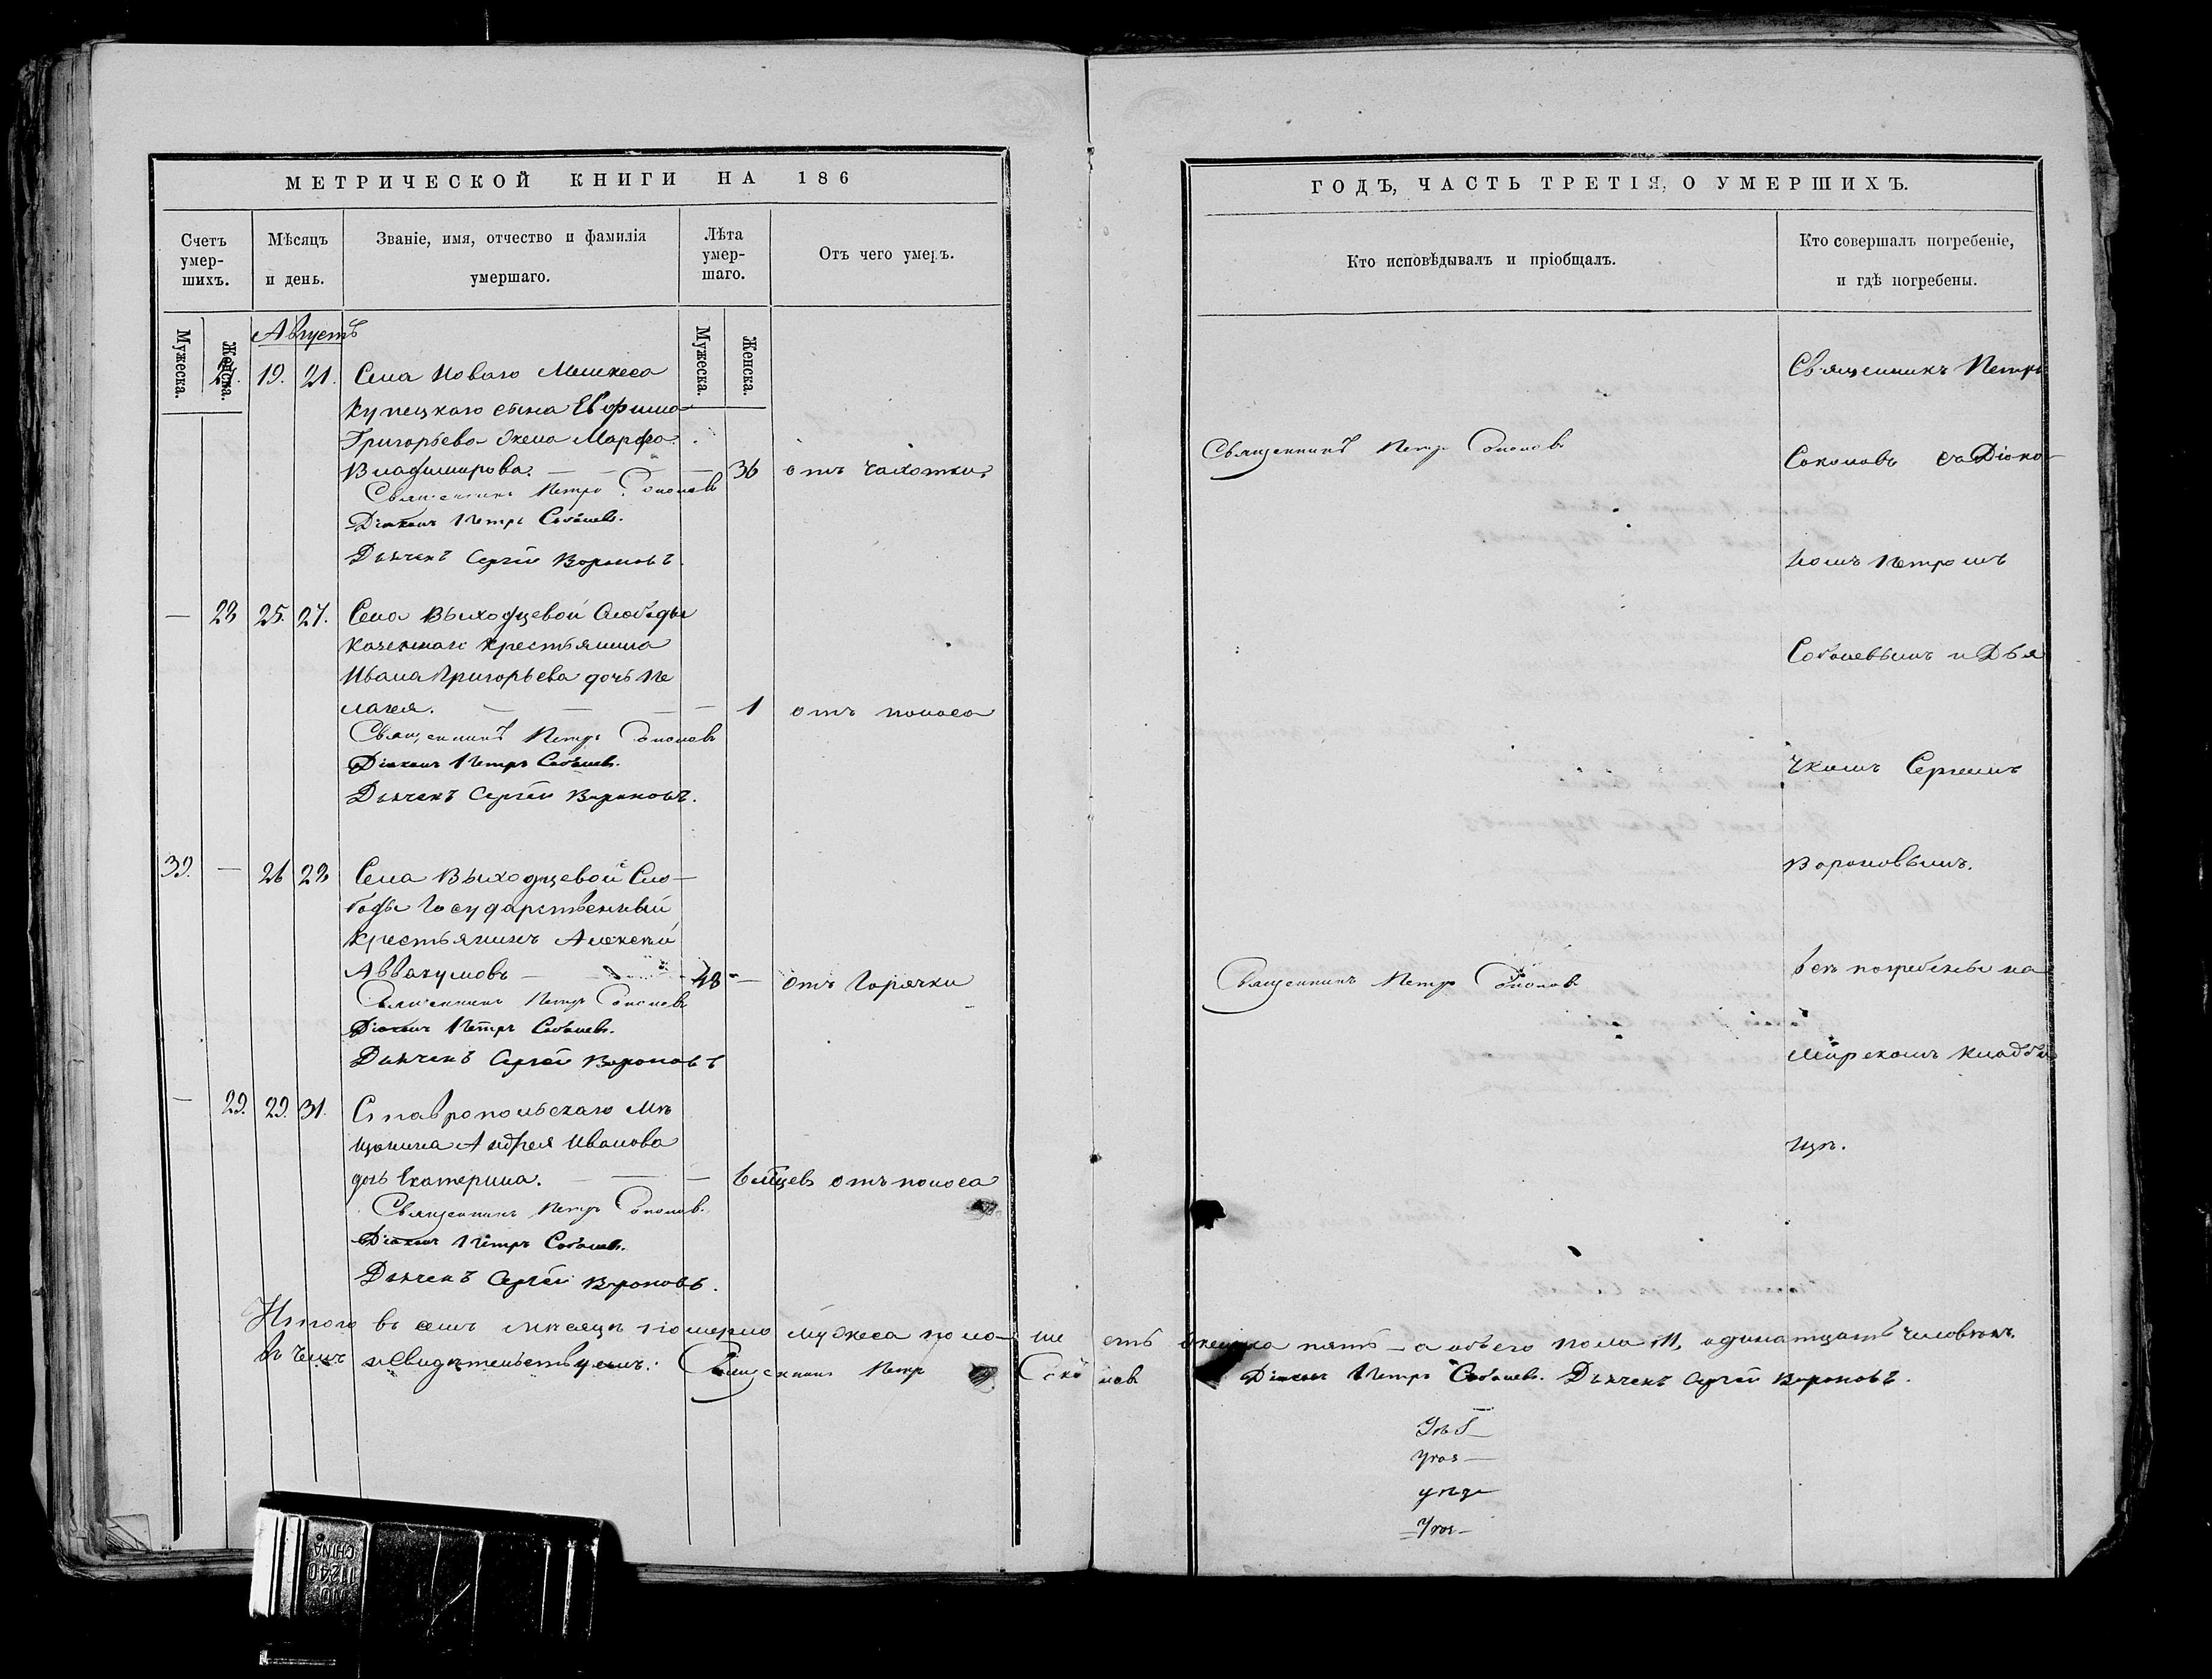 МЕТРИЧЕСКОЙ КНИГИ НА 186
Счетъ умер-шихъ.
Мѣсяцъ и день.
Званіе, имя, отчество и фамилія умершаго.
Лѣта умер-шаго.
Отъ чего умеръ.
Мужеска.
Женска.
Мужеска.
Женска.
Августъ
19. 21. Села Новаго
купецкаго сына Евфима
Григорьева жена Марфа
Владимирова. — — — 36 отъ чахотки.
Священникъ Петръ Соколовъ
Діаконъ Петръ Соболевъ.
Дьячекъ Сергѣй Вороновъ.
— 28 25. 27. Села Выходцевой Слободы
крестьянина
Ивана Григорьева дочь Пе
лагея. — — — — 1 отъ поноса
Священникъ Петръ Соколовъ
Діаконъ Петръ Соболевъ.
Дьячекъ Сергѣй Вороновъ.
39. — 26 28 Села Выходцевой Сло-
боды Государственный
крестьянинъ Алексѣй
Аввакумовъ — 48 — отъ горячки
Священникъ Петръ Соколовъ
Діаконъ Петръ Соболевъ.
Дьячекъ Сергѣй Вороновъ
— 29. 29. 31. Ставропольскаго мѣ
щанина Андрея Иванова
дочь Екатерина. — — — 6 мѣцевъ отъ поноса
Священникъ Петръ Соколовъ.
Діаконъ Петръ Соболевъ.
Дьячекъ Сергѣй Вороновъ.
ГОДЪ, ЧАСТЬ ТРЕТІЯ, О УМЕРШИХЪ.
Кто исповѣдывалъ и пріобщалъ.
Кто совершалъ погребеніе, и гдѣ погребены.
Священникъ Петръ Соколовъ
Священникъ Петръ Соколовъ
Священникъ Петръ
Соколовъ съ Діако-
номъ Петромъ
Соболевымъ и Дья
чкомъ Сергѣемъ
Вороновымъ.
всѣ погребены на
мирскомъ кладби
щѣ.
Итого въ семъ мѣсяцѣ померло мужеска пола ше сть женска пять – а обоего пола 11, одинатцать человѣкъ.
въ чемъ и свидѣтельствуемъ: Священникъ Петръ Соколовъ Діаконъ Петръ Соболевъ. Дьячекъ Сергѣй Вороновъ.